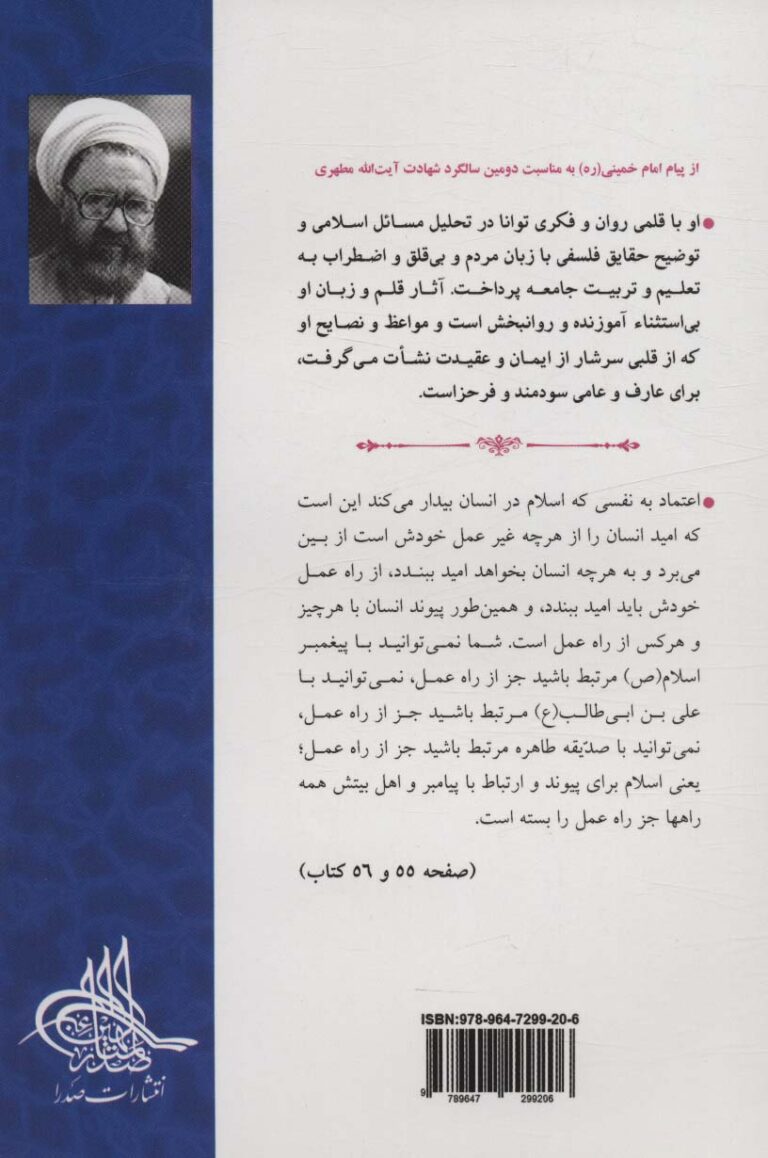 از پیام امام خمینی(ره) به مناسبت دومین سالگرد شهادت آیت‌الله مطهری
● او با قلمی روان و فکری توانا در تحلیل مسائل اسلامی و
توضیح حقایق فلسفی با زبان مردم و بی‌قلق و اضطراب به
تعلیم و تربیت جامعه پرداخت. آثار قلم و زبان او
بی‌استثناء آموزنده و روانبخش است و مواعظ و نصایح او
که از قلبی سرشار از ایمان و عقیدت نشأت می‌گرفت،
برای عارف و عامی سودمند و فرحزاست.
● اعتماد به نفسی که اسلام در انسان بیدار می‌کند این است
که امید انسان را از هرچه غیر عمل خودش است از بین
می‌برد و به هرچه انسان بخواهد امید ببندد، از راه عمل
خودش باید امید ببندد، و همین‌طور پیوند انسان با هرچیز
و هرکس از راه عمل است. شما نمی‌توانید با پیغمبر
اسلام(ص) مرتبط باشید جز از راه عمل، نمی‌توانید با
علی بن ابی‌طالب(ع) مرتبط باشید جز از راه عمل،
نمی‌توانید با صدّیقه طاهره مرتبط باشید جز از راه عمل؛
یعنی اسلام برای پیوند و ارتباط با پیامبر و اهل بیتش همه
راهها جز راه عمل را بسته است.
(صفحه ۵۵ و ۵۶ کتاب)
انتشارات صدرا
ISBN:978-964-7299-20-6
9 789647 299206